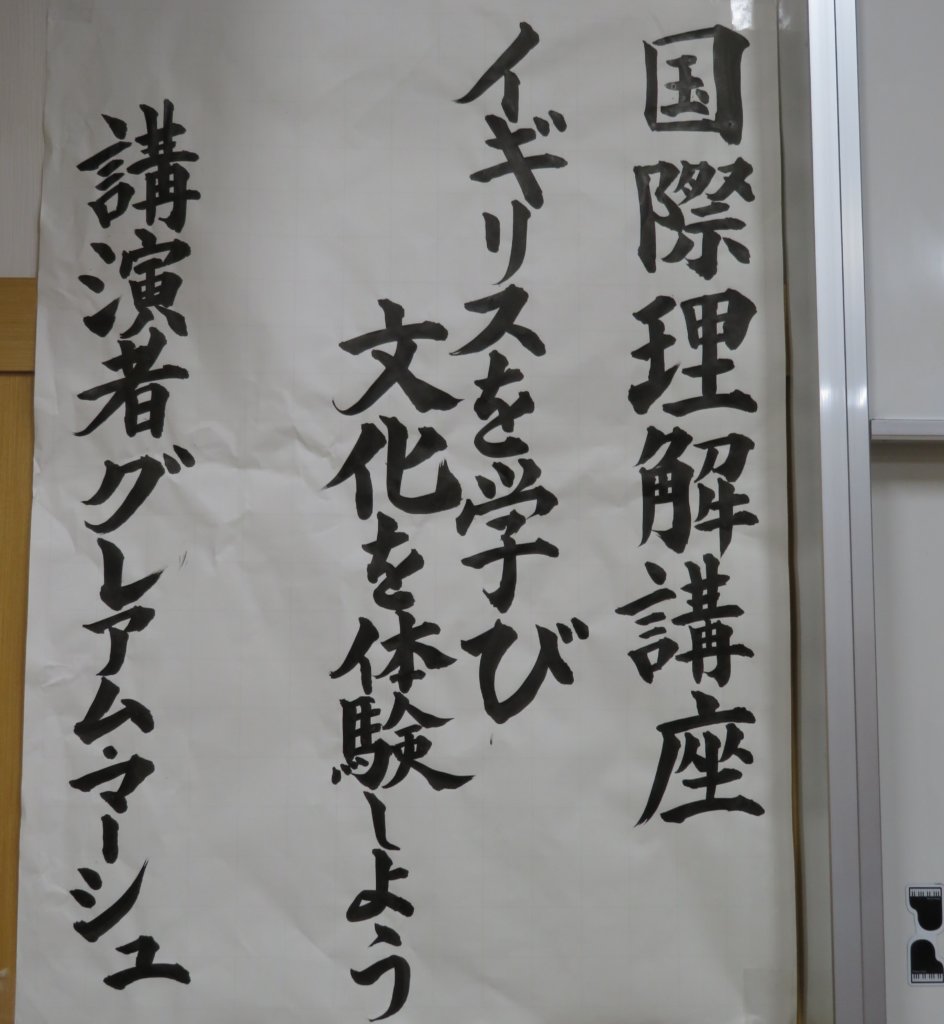 国際理解講座
イギリスを学び
文化を体験しよう
講演者グレアム・マーシュ